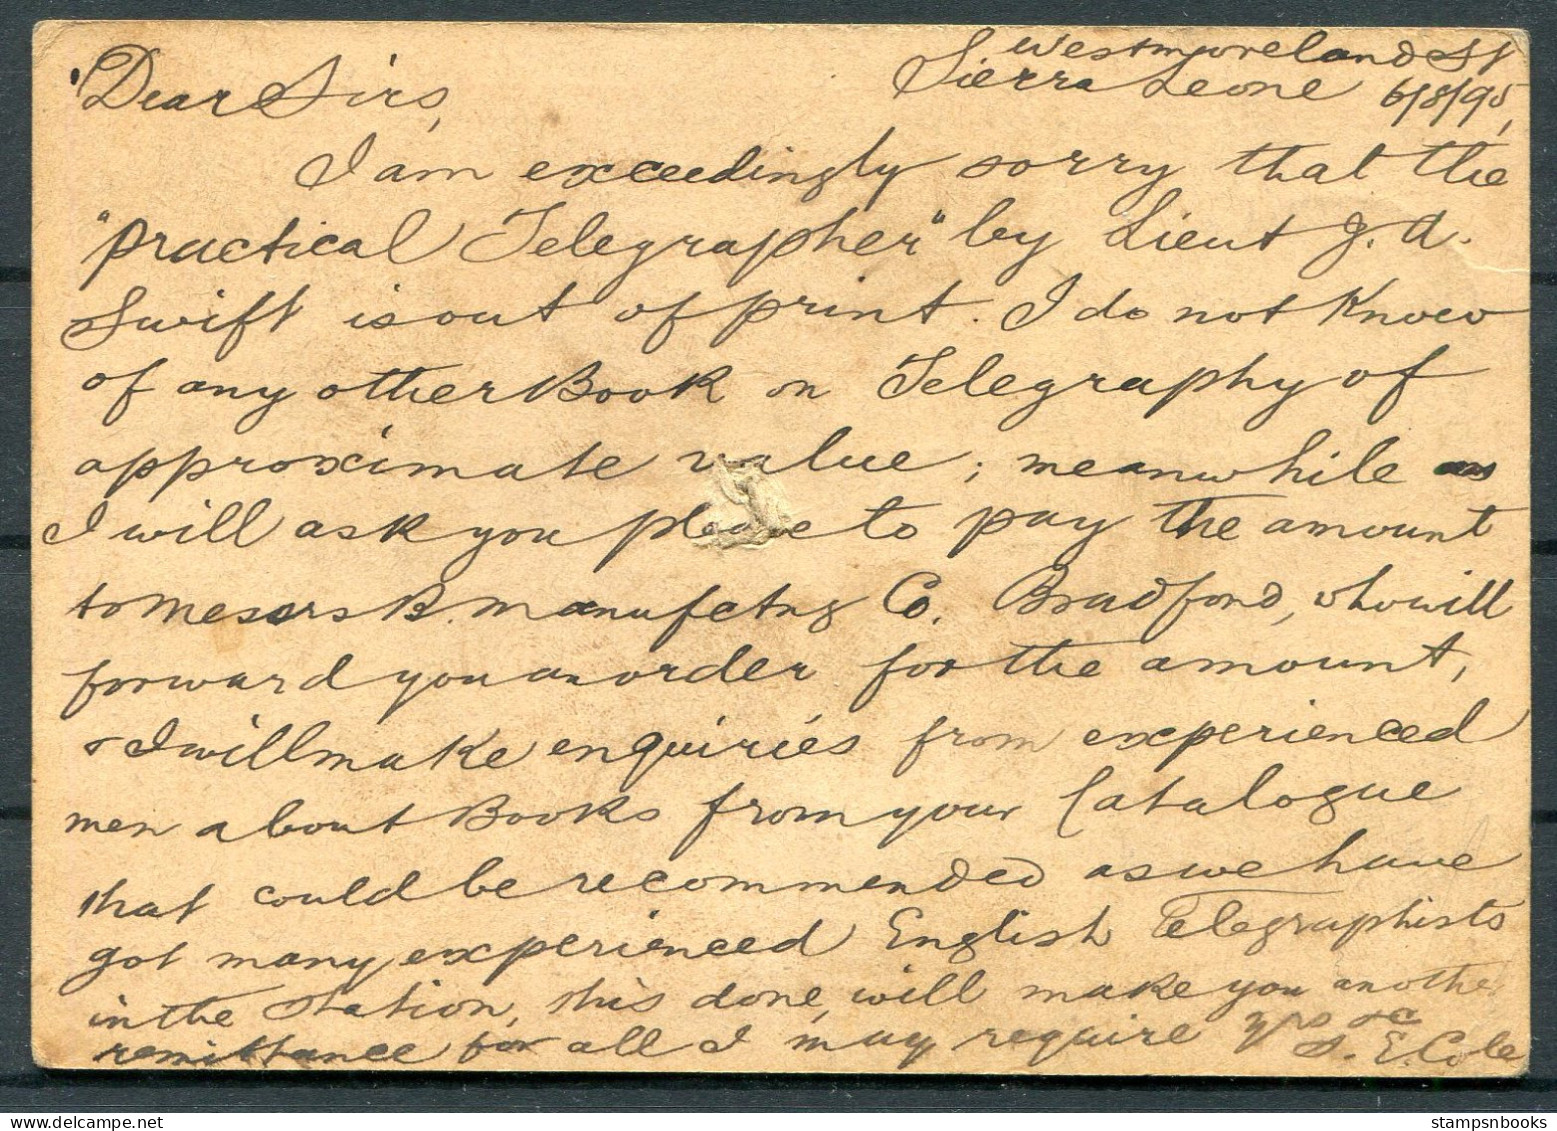 Westmoreland St
Sierra Leone 6/8/95,
Dear Sirs,
I am exceedingly sorry that the
"Practical Telegrapher" by Lieut J. A.
Swift is out of print. I do not know
of any other Book on Telegraphy of
approximate value; meanwhile
I will ask you please to pay the amount
to Messrs B. manufctng Co. Bradford, who will
forward you an order for the amount,
& I will make enquiries from experienced
men about Books from your Catalogue
that could be recommended as we have
got many experienced English Telegraphists
in the Station, this done, will make you another
remittance for all I may require Yrs &c
S. E. Cole
stampsnbooks